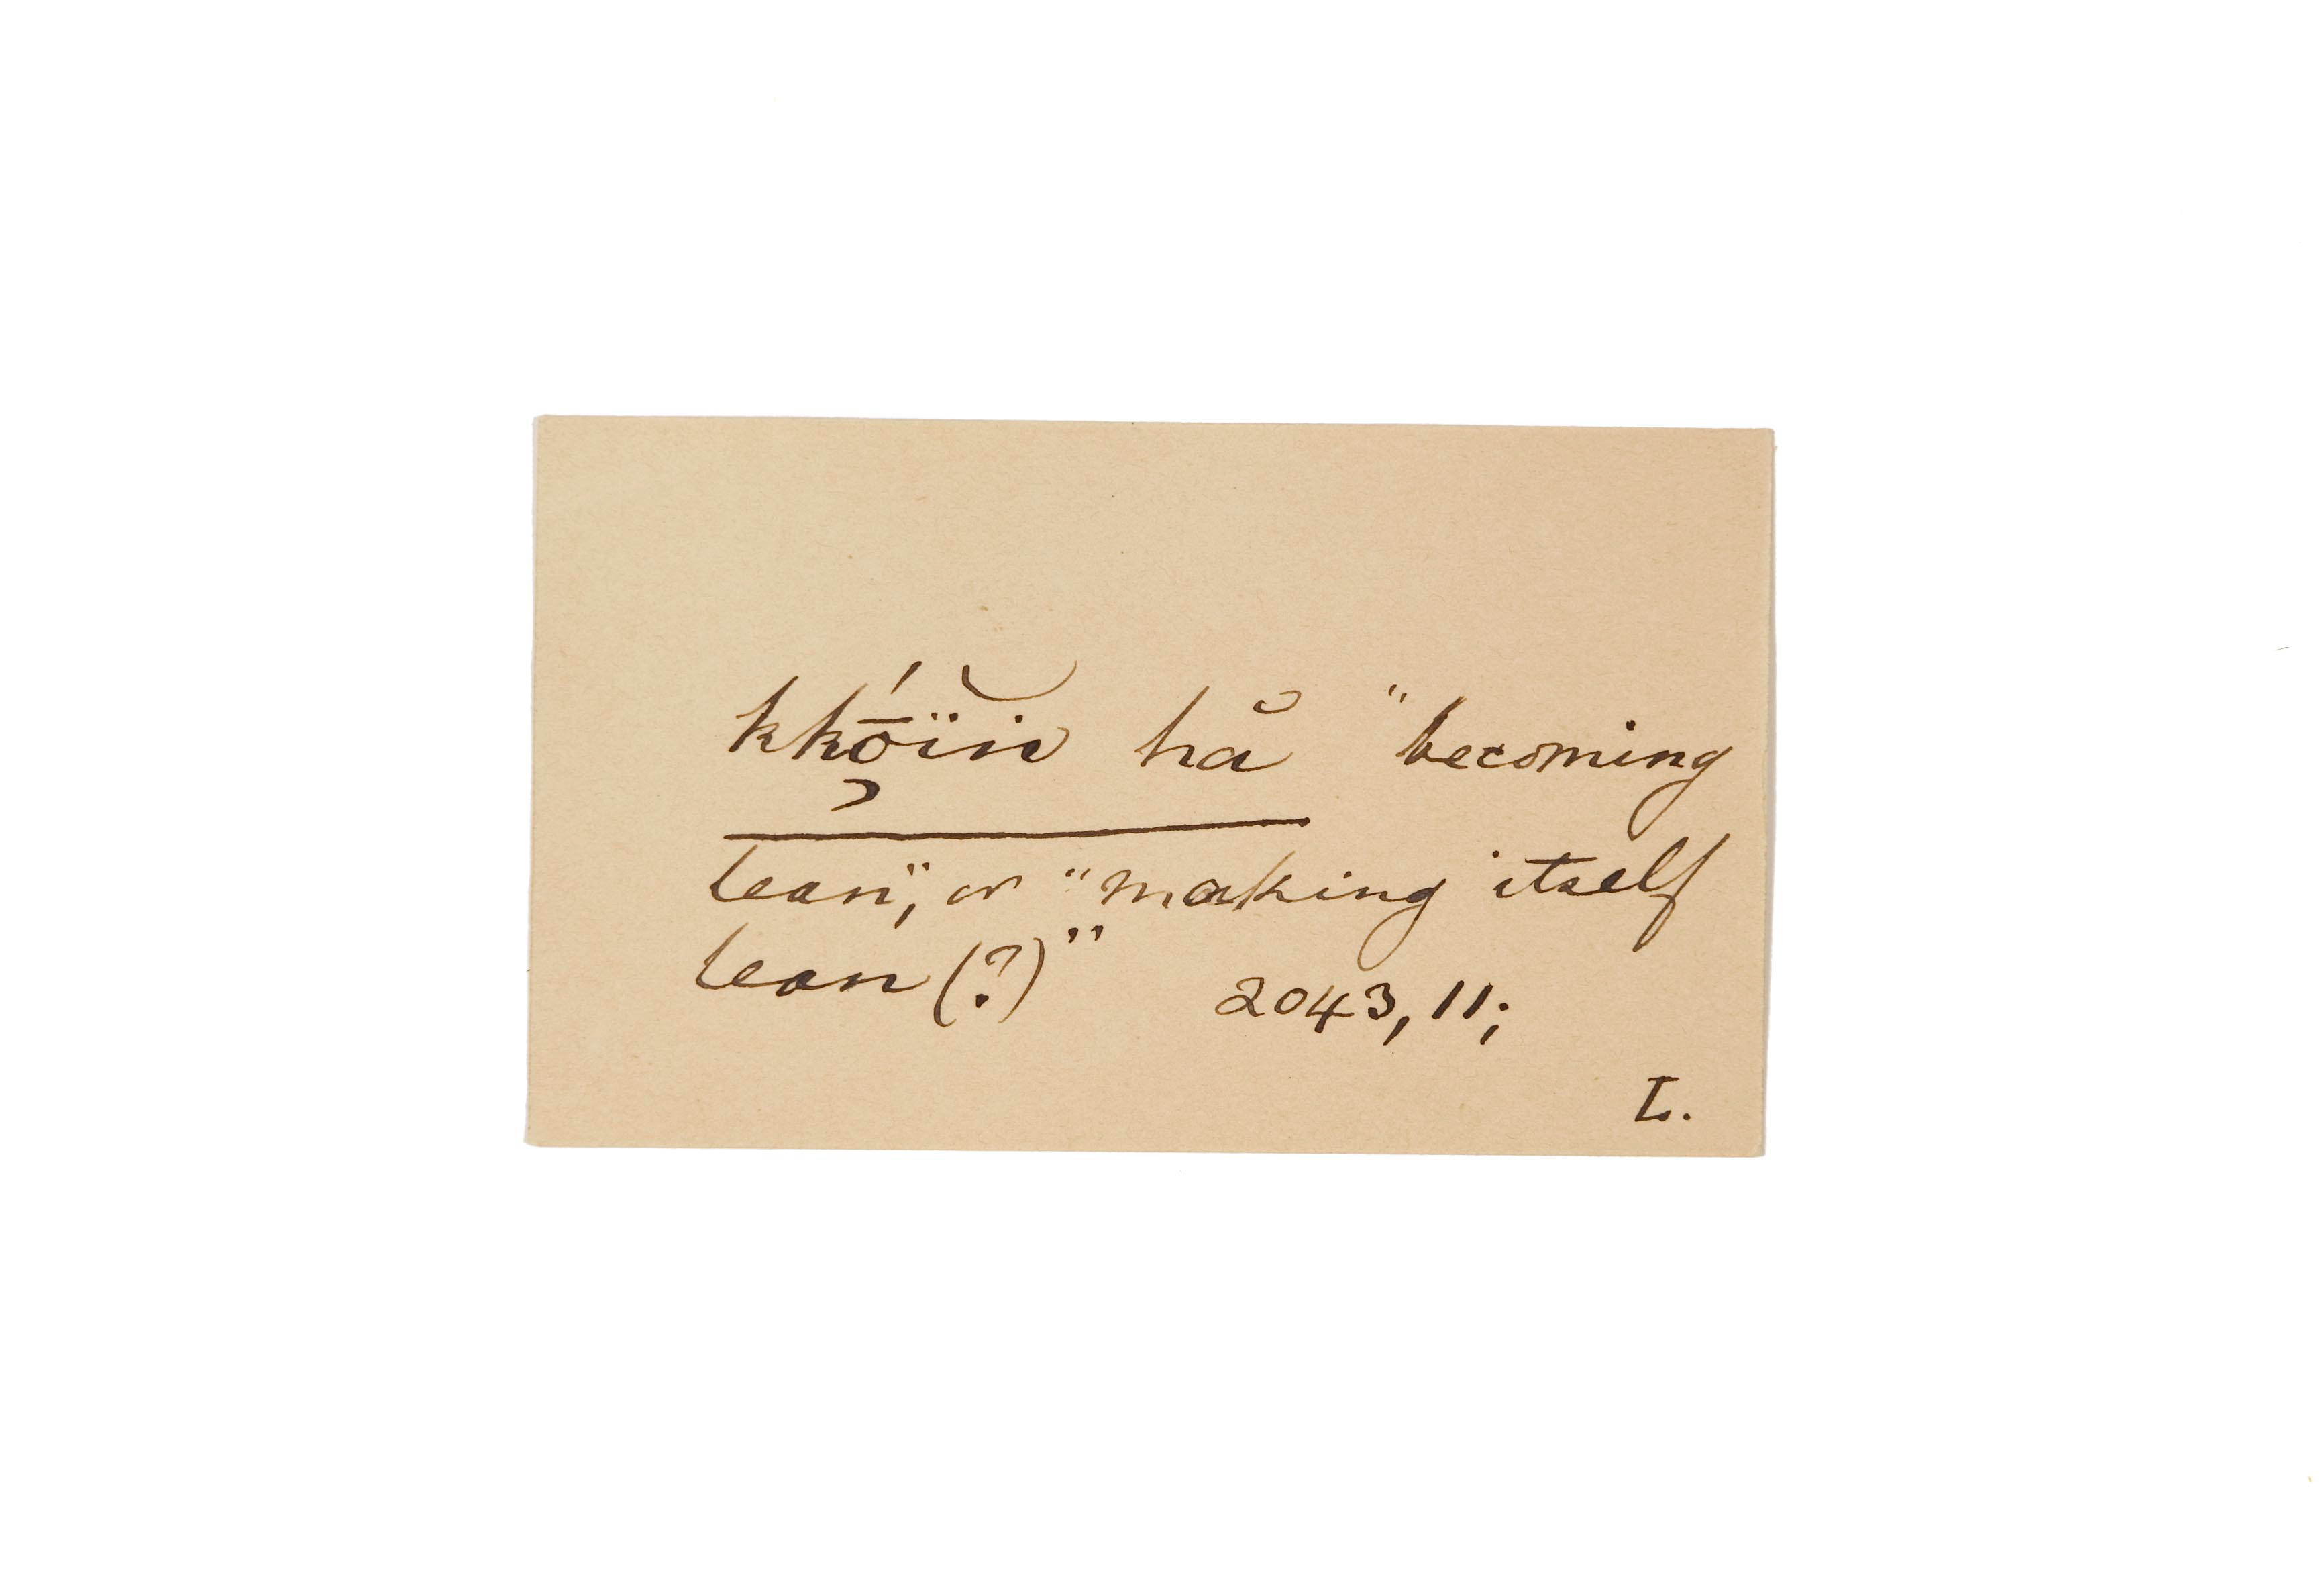 kkṓ̜ïn̆ hă "becoming
lean", or "making itself
lean (?)" 2043, 11;
L.